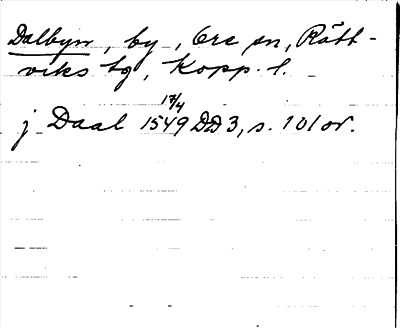 Dalbyn, by, Ore sn, Rätt-
viks tg, Kopp. l.
j Daal 1549 17/4 DD 3, s. 101 or.